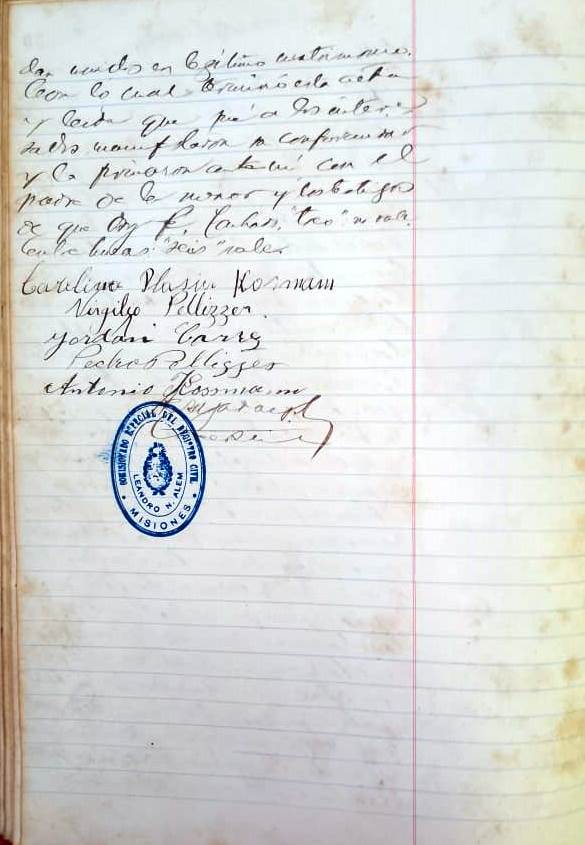 dan unidos en legítimo matrimonio.
Con lo cual terminó esta acta
y leída que fué a los intere-
sados manifestaron su conformidad
y la firmaron con el
padre de la menor y los testigos
de que doy fé. "tres" no vale.
Entre lineas: "seis" vale.
Carolina Kosmann
Virgilio Pellizzer.
Jordan
Pedro Pellizzer
Antonio Kossmann
COMISIONADO ESPECIAL DEL REGISTRO CIVIL
LEANDRO N. ALEM
• MISIONES •